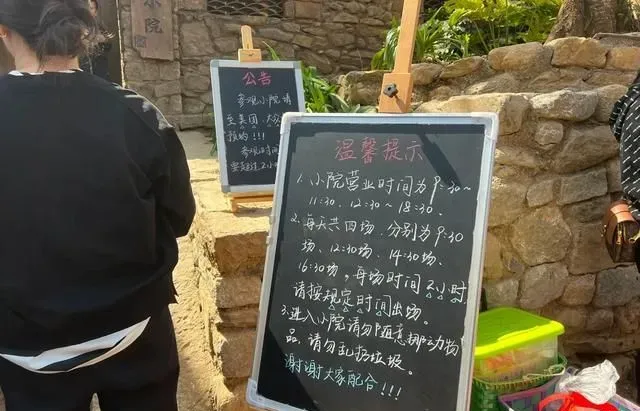 小院
公告
参观小院请
至美团、大众
预约!!!
参观时间
不要超过2小时
温馨提示
1、小院营业时间为9:30~
11:30、12:30~18:30、
2、每天共四场、分别为9:30
场、12:30场、14:30场、
16:30场,每场时间2小时,
请按规定时间出场。
3、进入小院请勿随意挪动物
品、请勿乱扔垃圾。
谢谢大家配合!!!